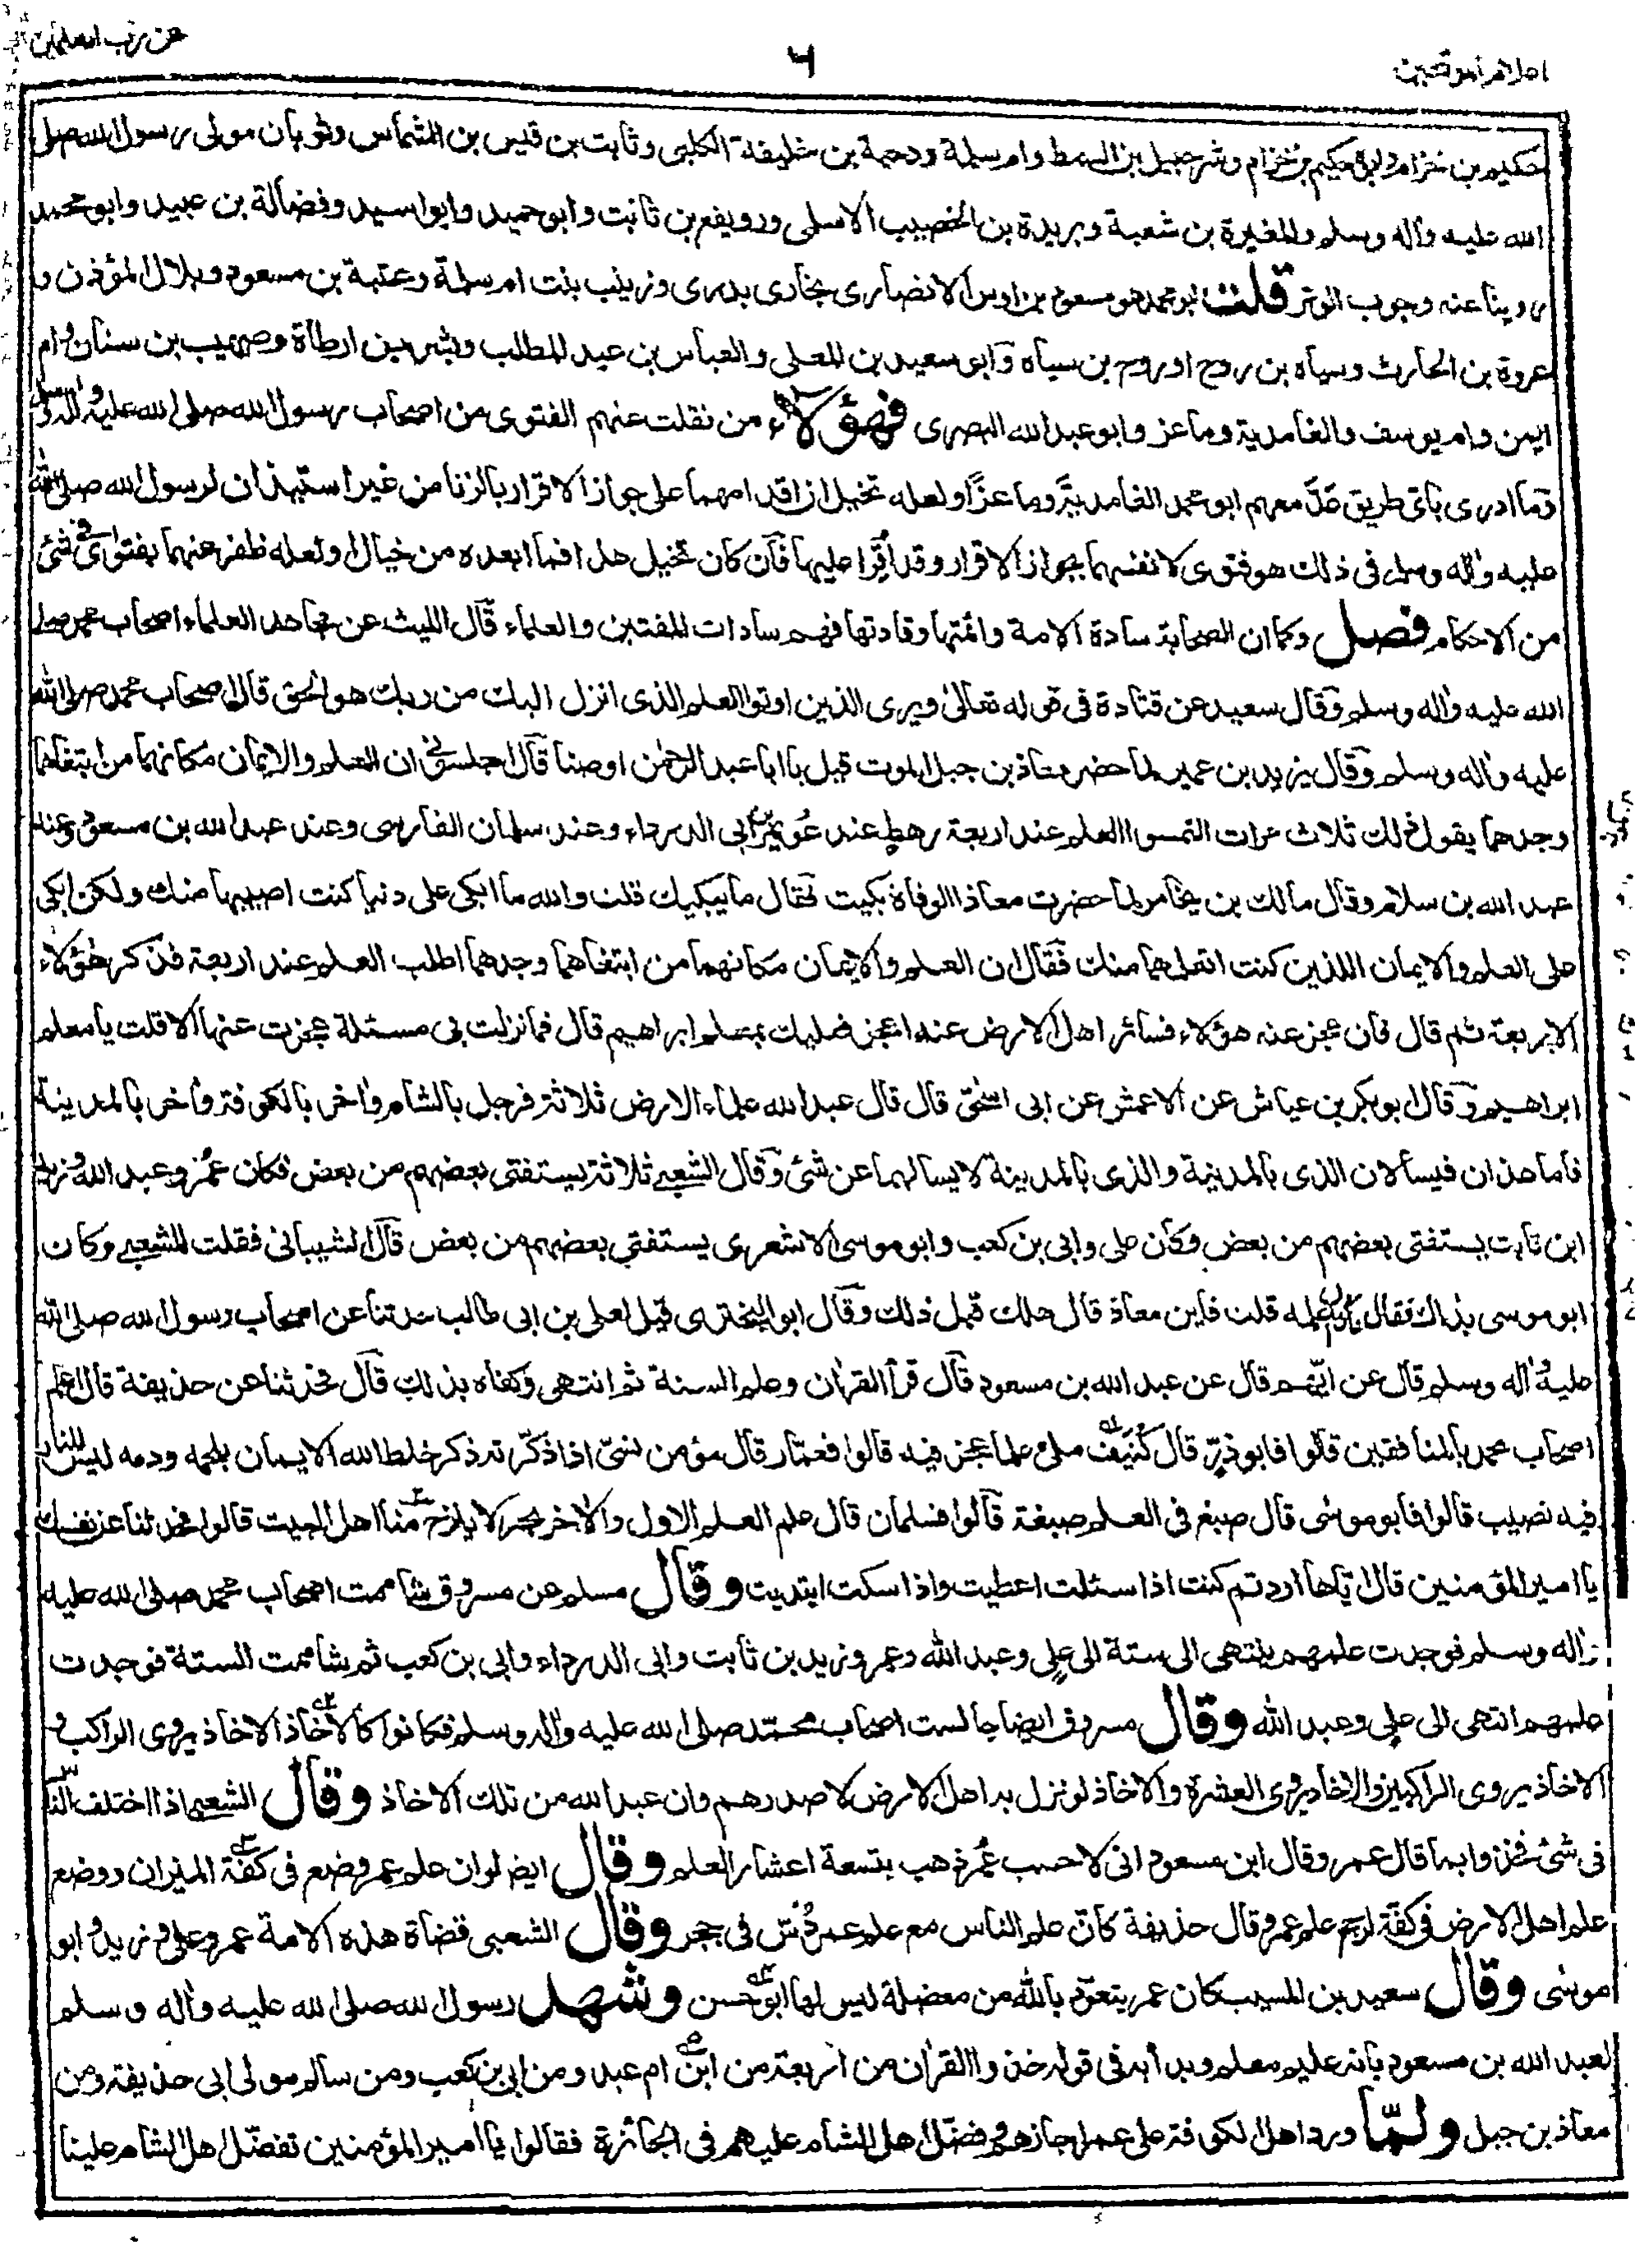 اعلام الموقعين
٦
عن رب العالمين
حكيم بن حزام وابنه حكيم بن حزام وشرحبيل بن السمط وام سلمة ودحية بن خليفة الكلبى وثابت بن قيس بن الشماس وثوبان مولى رسول الله صلى
الله عليه واله وسلم والمغيرة بن شعبة وبريدة بن الخصيب الاسلمى ورويفع بن ثابت وابو حميد وابو اسيد وفضالة بن عبيد وابو محمد
روينا عنه وجوب الوتر قلت ابو محمد هو مسعود بن اوس الانصارى نجارى بدرى وزينب بنت ام سلمة وعتبة بن مسعود وبلال المؤذن و
عروة بن الحارث وسياه بن روح او روح بن سياه وابو سعيد بن المعلى والعباس بن عبد المطلب وبشر بن ارطاة وصهيب بن سنان وام
ايمن وام يوسف والغامدية وماعز وابو عبد الله البصرى فهؤلاء من نقلت عنهم الفتوى من اصحاب رسول الله صلى الله عليه واله وسلم
وما ادرى باى طريق عد معهم ابو محمد الغامدية وماعزا ولعله تخيل ان اقدامهما على جواز الاقرار بالزنا من غير استيذان لرسول الله صلى الله
عليه واله وسلم فى ذلك هو فتوى لانفسهما بجواز الاقرار وقد اقرا عليها فان كان تخيل هذا فما ابعده من خيال او لعله ظفر عنهما بفتوى فى شئ
من الاحكام فصل وكما ان الصحابة سادة الامة وائمتها وقادتها فهم سادات المفتين والعلماء قال الليث عن مجاهد العلماء اصحاب محمد صلى
الله عليه واله وسلم وقال سعيد عن قتادة فى قوله تعالى ويرى الذين اوتوا العلم الذى انزل اليك من ربك هو الحق قال اصحاب محمد صلى الله
عليه واله وسلم وقال يزيد بن عمير لما حضر معاذ بن جبل الموت قيل يا ابا عبد الرحمن اوصنا قال اجلسونى ان العلم والايمان مكانهما من ابتغاهما
وجدهما يقول ذلك ثلاث مرات التمسوا العلم عند اربعة رهط عند عويمر ابى الدرداء وعند سلمان الفارسى وعند عبد الله بن مسعود وعند
عبد الله بن سلام وقال مالك بن يخامر لما حضرت معاذا الوفاة بكيت فقال ما يبكيك قلت والله ما ابكى على دنيا كنت اصيبها منك ولكن ابكى
على العلم والايمان اللذين كنت اتعلمهما منك فقال ان العلم والايمان مكانهما من ابتغاهما وجدهما اطلب العلم عند اربعة فذكر هؤلاء
الاربعة ثم قال فان عجز عنه هؤلاء فسائر اهل الارض عنه اعجز فعليك بمعلم ابراهيم قال فما نزلت بى مسئلة عجزت عنها الا قلت يا معلم
ابراهيم وقال ابو بكر بن عياش عن الاعمش عن ابى اسحق قال قال عبد الله علماء الارض ثلاثة فرجل بالشام واخر بالكوفة واخر بالمدينة
فاما هذان فيسألان الذى بالمدينة والذى بالمدينة لا يسالهما عن شئ وقال الشعبى ثلاثة يستفتى بعضهم من بعض فكان عمر وعبد الله وزيد
ابن ثابت يستفتى بعضهم من بعض وكان على وابى بن كعب وابو موسى الاشعرى يستفتى بعضهم من بعض قال الشيبانى فقلت للشعبى وكان
ابو موسى بذاك فقال علمه قلت فاين معاذ قال هلك قبل ذلك وقال ابو البخترى قيل لعلى بن ابى طالب حدثنا عن اصحاب رسول الله صلى الله
عليه واله وسلم قال عن ايهم قال عن عبد الله بن مسعود قال قرأ القران وعلم السنة ثم انتهى وكفاه بذلك قال فحدثنا عن حذيفة قال اعلم
اصحاب محمد بالمنافقين قالوا فابو ذر قال كنيف ملئ علما عجز فيه قالوا فعمار قال مؤمن نسى اذا ذكر تذكر خلط الله الايمان بلحمه ودمه ليس للنار
فيه نصيب قالوا فابو موسى قال صبغ فى العلم صبغة قالوا فسلمان قال علم العلم الاول والاخر بحر لا ينزح منا اهل البيت قالوا فحدثنا عن نفسك
يا امير المؤمنين قال اياها اردتم كنت اذا سئلت اعطيت واذا سكت ابتديت وقال مسلم عن مسروق شاممت اصحاب محمد صلى الله عليه
واله وسلم فوجدت علمهم ينتهى الى ستة الى على وعبد الله وعمر وزيد بن ثابت وابى الدرداء وابى بن كعب ثم شاممت الستة فوجدت
علمهم انتهى الى على وعبد الله وقال مسروق ايضا جالست اصحاب محمد صلى الله عليه واله وسلم فكانوا كالاخاذ الاخاذ يروى الراكب و
الاخاذ يروى الراكبين والاخاذ يروى العشرة والاخاذ لو نزل به اهل الارض لاصدرهم وان عبد الله من تلك الاخاذ وقال الشعبى اذا اختلف الناس
فى شئ فخذوا بما قال عمر وقال ابن مسعود انى لاحسب عمر ذهب بتسعة اعشار العلم وقال ايضا لو ان علم عمر وضع فى كفة الميزان ووضع
علم اهل الارض فى كفة لرجح علم عمر وقال حذيفة كان علم الناس مع علم عمر دس فى جحر وقال الشعبى قضاة هذه الامة عمر وعلى وزيد وابو
موسى وقال سعيد بن المسيب كان عمر يتعوذ بالله من معضلة ليس لها ابو حسن وشهد رسول الله صلى الله عليه واله وسلم
لعبد الله بن مسعود بانه عليم معلم وبدأ به فى قوله خذوا القران من اربعة من ابن ام عبد ومن ابى بن كعب ومن سالم مولى ابى حذيفة ومن
معاذ بن جبل ولما ورد اهل الكوفة على عمر اجازهم وفضل اهل الشام عليهم فى الجائزة فقالوا يا امير المؤمنين تفضل اهل الشام علينا